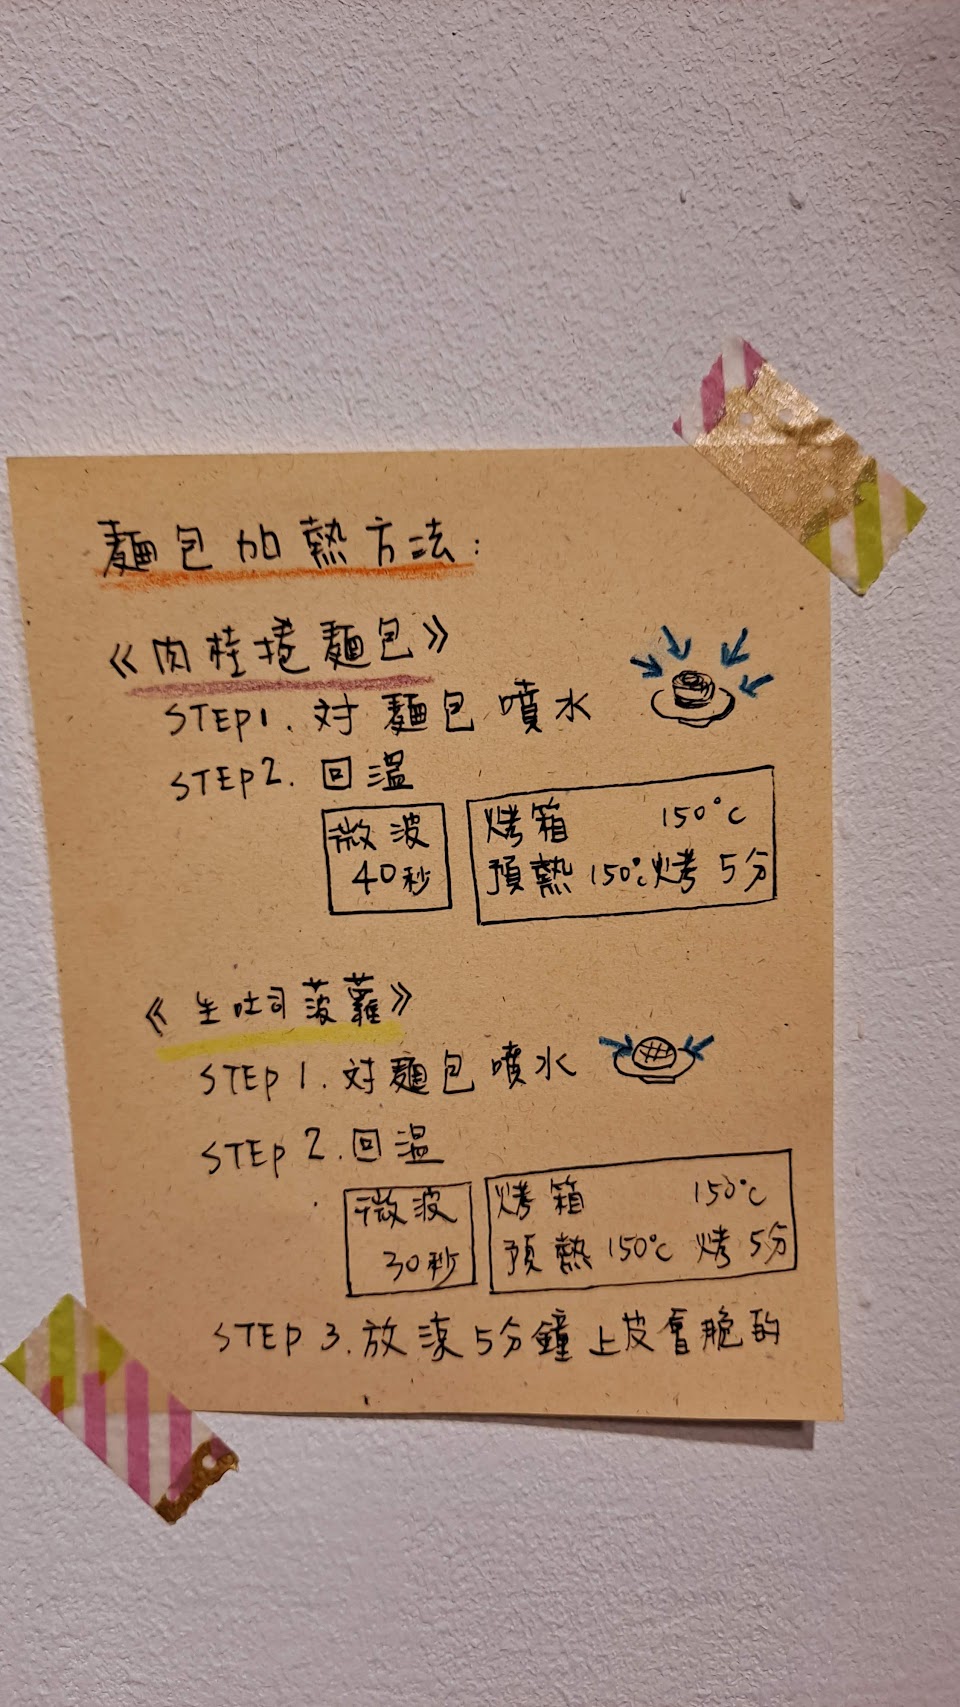 麵包加熱方法:
《肉桂捲麵包》
STEP1. 対麵包噴水
STEP2. 回溫
微波
40秒
烤箱 150°C
預熱150°C烤5分
《生吐司菠蘿》
STEP1. 対麵包噴水
STEP2. 回溫
微波
30秒
烤箱 150°C
預熱150°C烤5分
STEP3. 放涼5分鐘上皮會脆的